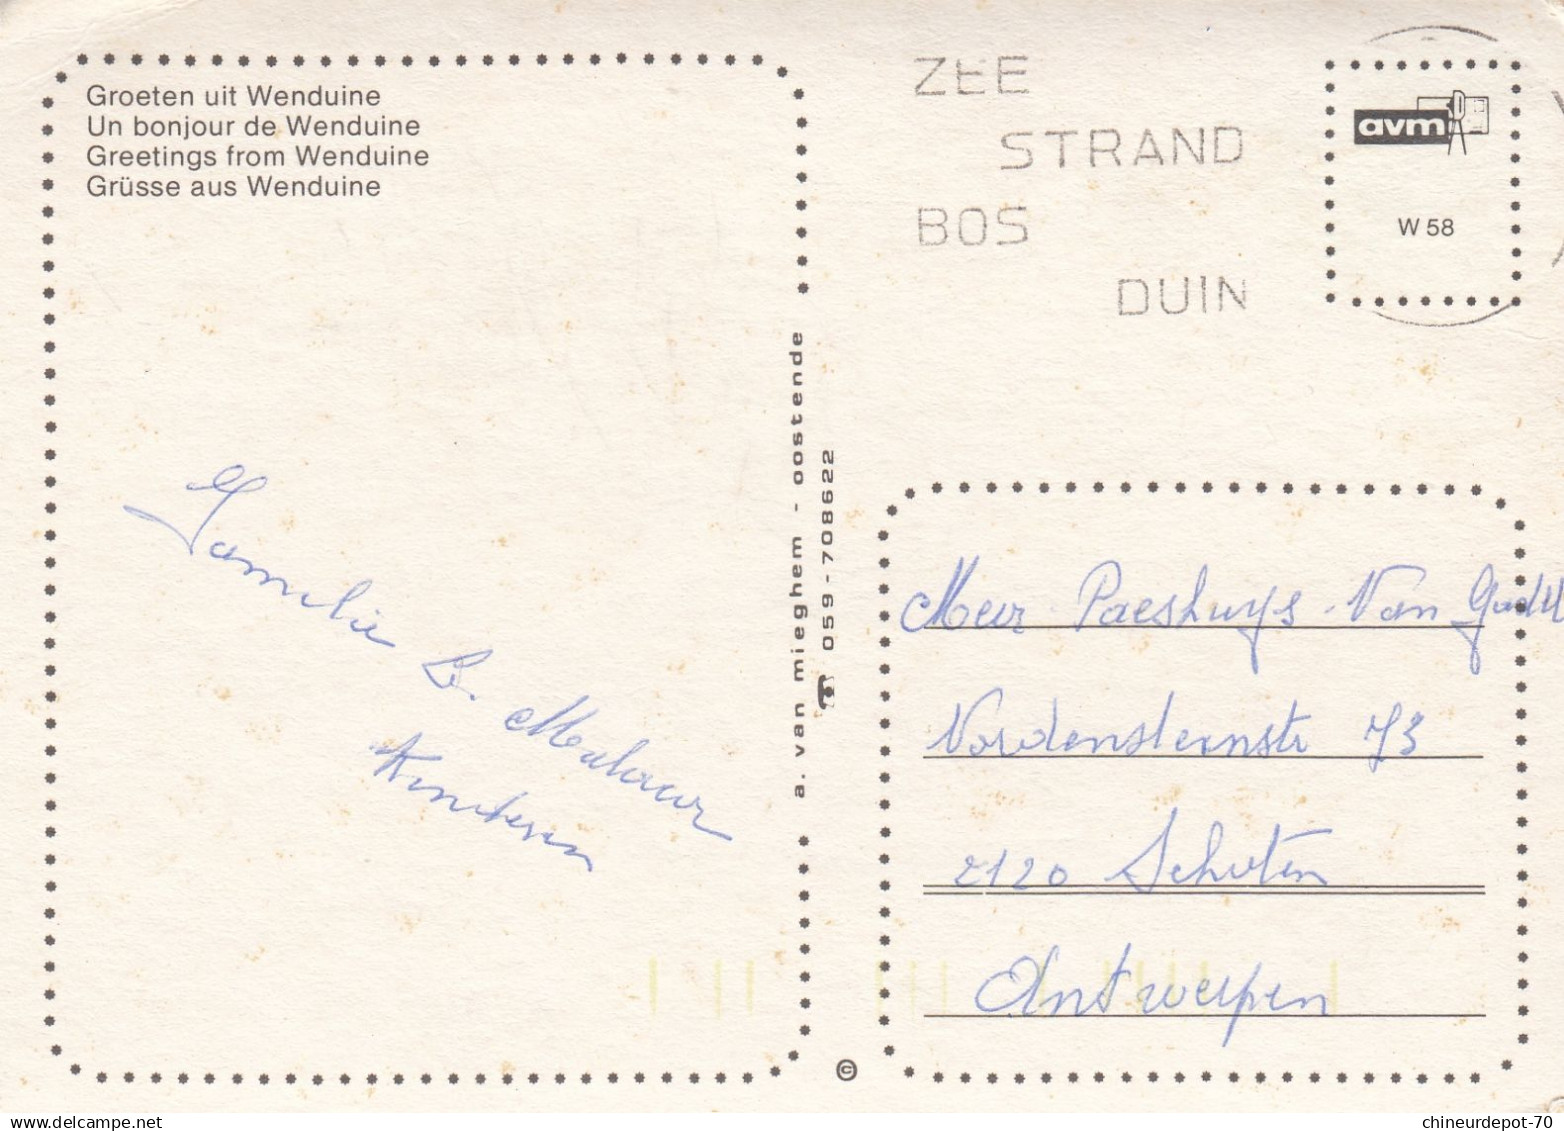 Groeten uit Wenduine
Un bonjour de Wenduine
Greetings from Wenduine
Grüsse aus Wenduine
ZEE
STRAND
BOS
DUIN
avm
W 58
a. van mieghem - oostende
059-708622
Familie
Meer Paeshuys - Van
Nordensteenstr 73
2120 Schoten
Antwerpen
©
chineurdepot-70